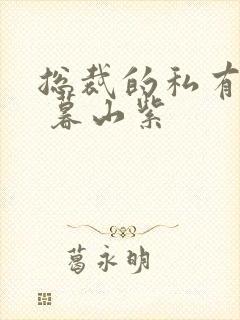 总裁的私有
暮山紫
葛永明